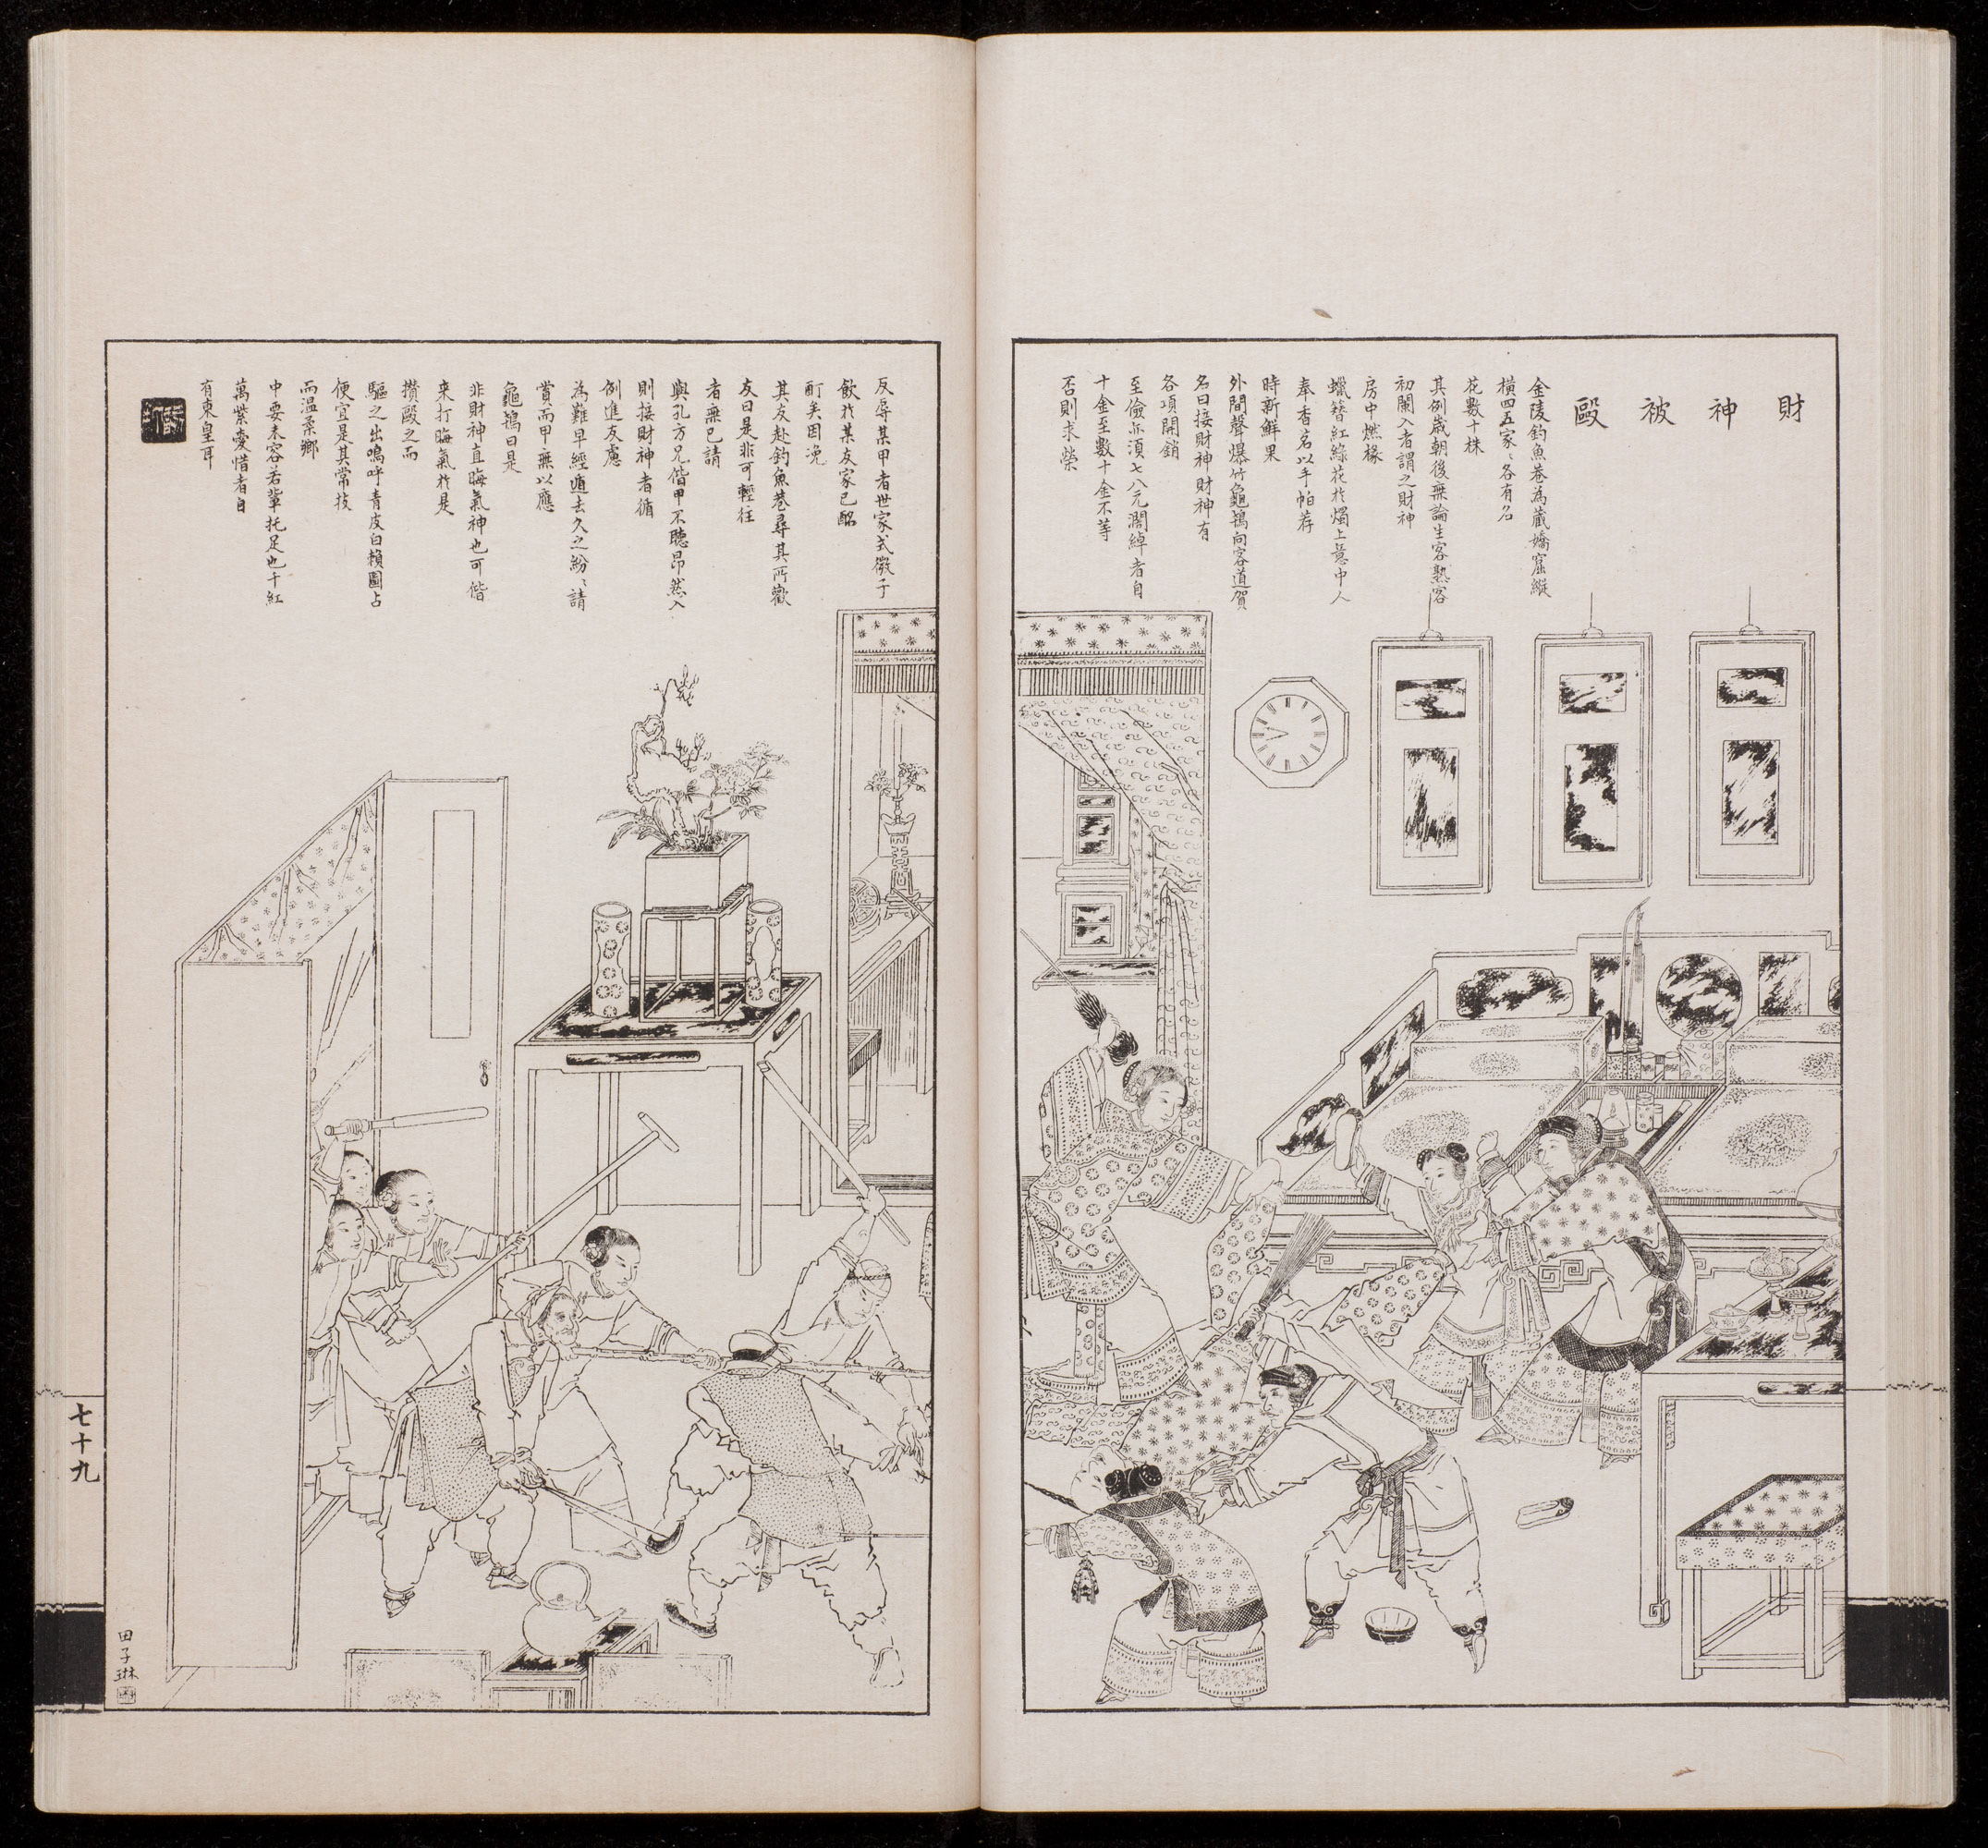 財神被毆
金陵釣魚巷為藏嬌窟縱
橫四五家〻各有名
花數十株
其例歲朝後無論生客熟客
初闌入者謂之財神
房中燃椽
蠟簪紅綠花於燭上意中人
奉香茗以手帕荐
時新鮮果
外間聲爆竹龜鴇向客道賀
名曰接財神財神有
各項開銷
至儉亦須七八元濶綽者自
十金至數十金不等
否則求榮
反辱某甲者世家式微子
飲於某友家已酩
酊矣因浼
其友赴釣魚巷尋其所歡
友曰是非可輕往
者無已請
與孔方兄偕甲不聽昂然入
則接財神者循
例進友慮
為難早經遁去久之紛〻請
賞而甲無以應
龜鴇曰是
非財神直晦氣神也可偕
来打晦氣於是
攢毆之而
驅之出嗚呼青皮白賴圖占
便宜是其常技
而温柔鄉
中要未容若輩托足也千紅
萬紫愛惜者自
有東皇耳
七十九
田子琳